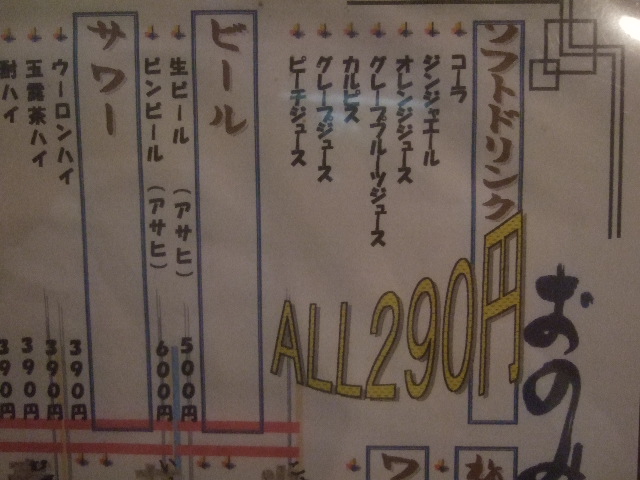 おのみ
ソフトドリンク
コーラ
ジンジャエール
オレンジジュース
グレープフルーツジュース
カルピス
グレープジュース
ピーチジュース
ALL290円
ビール
生ビール (アサヒ) 500円
ビンビール (アサヒ) 600円
サワー
390円
ウーロンハイ 390円
玉露茶ハイ 390円
酎ハイ 390円
ワ